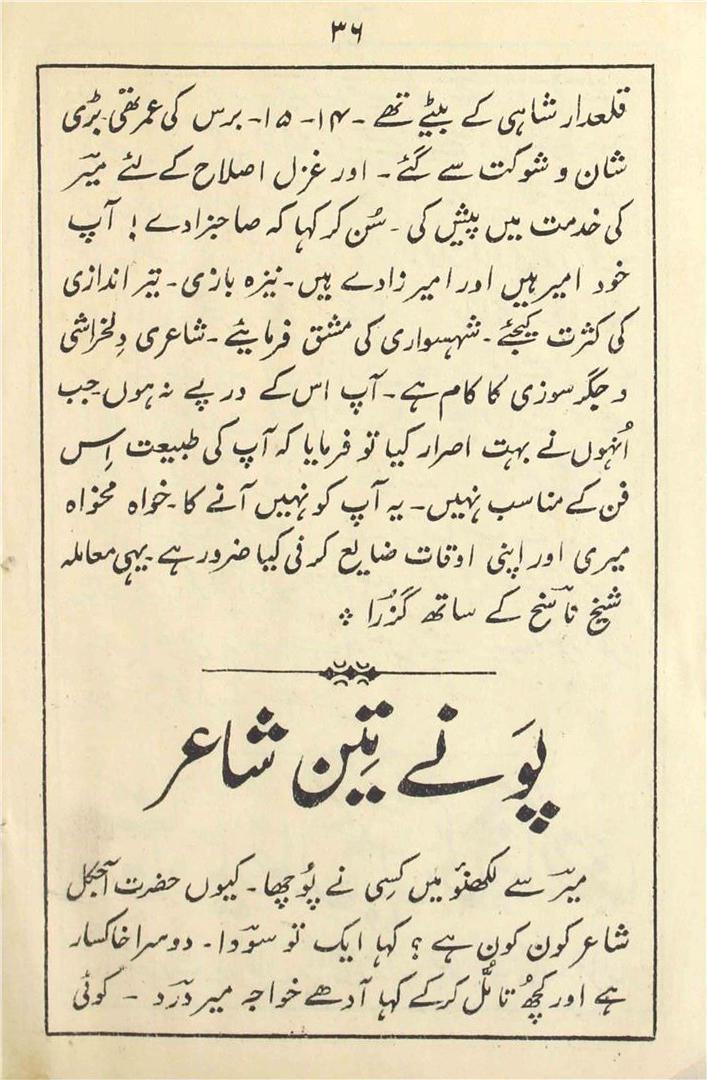 ۳۶
قلعدار شاہی کے بیٹے تھے ۔ ۱۴۔ ۱۵۔ برس کی عمر تھی۔ بڑی
شان و شوکت سے گئے ۔ اور غزل اصلاح کے لئے میرؔ
کی خدمت میں پیش کی ۔ سُن کر کہا کہ صاحبزادے! آپ
خود امیر ہیں اور امیر زادے ہیں۔ نیزہ بازی۔ تیر اندازی
کی کثرت کیجئے ۔ شہسواری کی مشق فرمایئے ۔ شاعری دلخراشی
و جگر سوزی کا کام ہے ۔ آپ اس کے درپے نہ ہوں۔ جب
اُنہوں نے بہت اصرار کیا تو فرمایا کہ آپ کی طبیعت اِس
فن کے مناسب نہیں۔ یہ آپ کو نہیں آنے کا ۔ خواہ مخواہ
میری اور اپنی اوقات ضایع کرنی کیا ضرور ہے ۔ یہی معاملہ
شیخ ناسؔخ کے ساتھ گذُرا ❖
پَونے تِین شاعر
میرؔ سے لکھنؤ میں کِسی نے پُوچھا۔ کیوں حضرت آجکل
شاعر کون کون ہے ؟ کہا ایک تو سوؔدا۔ دوسرا خاکسار
ہے اور کچھُ تامُّل کرکے کہا آدھے خواجہ میر دؔرد ۔ کوئی